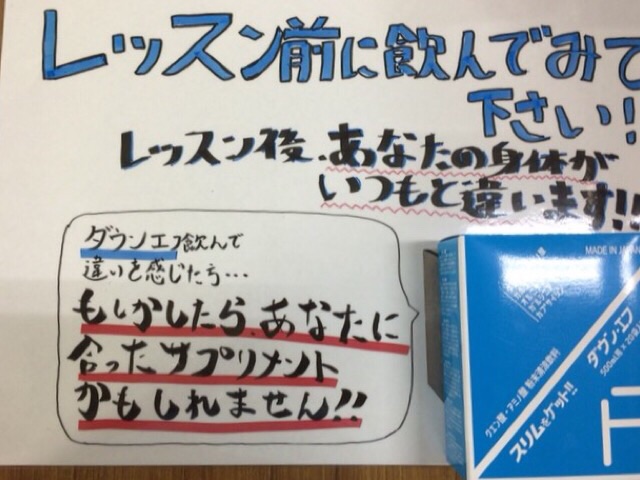 レッスン前に飲んでみて
下さい!
レッスン後、あなたの身体が
いつもと違います!!
ダウンエフ飲んで
違いを感じたら…
もしかしたら、あなたに
合ったサプリメント
かもしれません!!
MADE IN JAPAN
クエン酸・アミノ酸 粉末清涼飲料
スリムをゲット!!
ダウン・エフ
500ml用×20